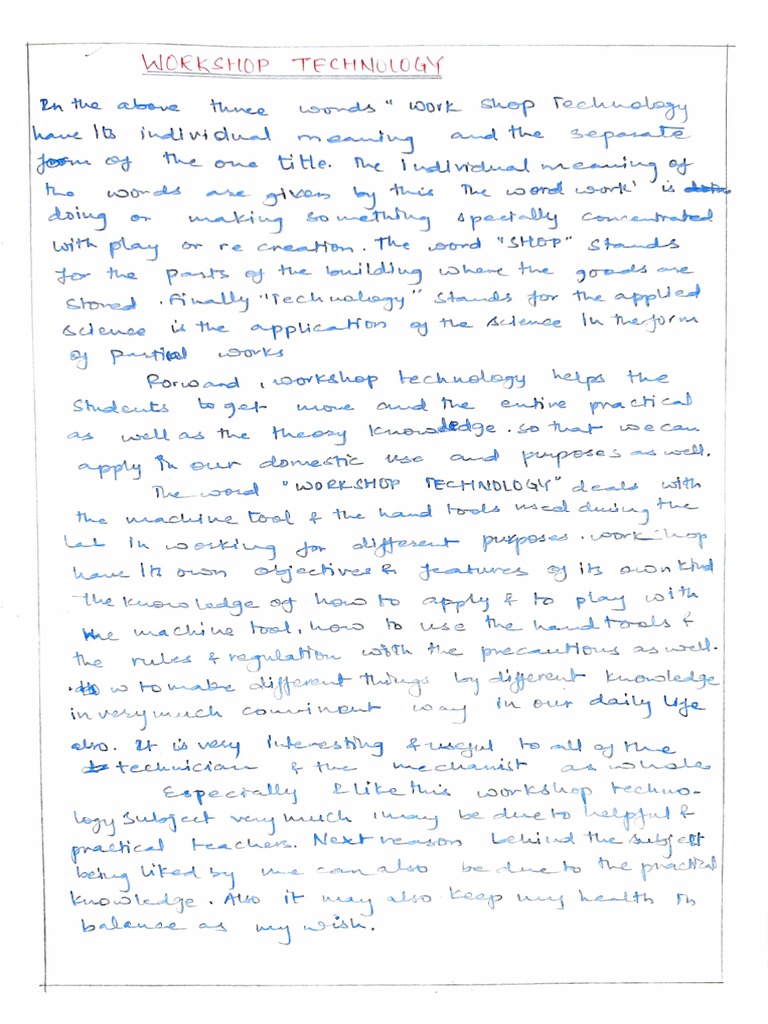 WORKSHOP TECHNOLOGY
In the above three words " Work Shop Technology
have Its individual meaning and the separate
form of the one title. The individual meaning of
the words are given by this The word work' is
doing or making something specially concentrated
with play or re creation. The word "SHOP" Stands
for the parts of the building where the goods are
Stored . Finally "Technology" Stands for the applied
science is the application of the science In the form
of works
Forward , workshop technology helps the
Students to get more and the entire practical
as well as the theory knowledge . so that we can
apply In our domestic use and purposes as well.
The word "WORKSHOP TECHNOLOGY" deals with
the machine tool & the hand tools used during the
in working for different purposes . workshop
have Its own objectives & features of its own kind
The knowledge of how to apply & to play with
the machine tool, how to use the hand tools &
the rules & regulation with the precautions as well.
How to make different things by different knowledge
in very much convinent way in our daily life
also. It is very Interesting & useful to all of the
technician & the mechanist as whole
Especially I like this workshop techno-
logy subject very much may be due to helpful &
practical teachers. Next reason behind the subject
being liked by me can also be due to the practical
knowledge . Also it may also keep my health In
balance as my wish.